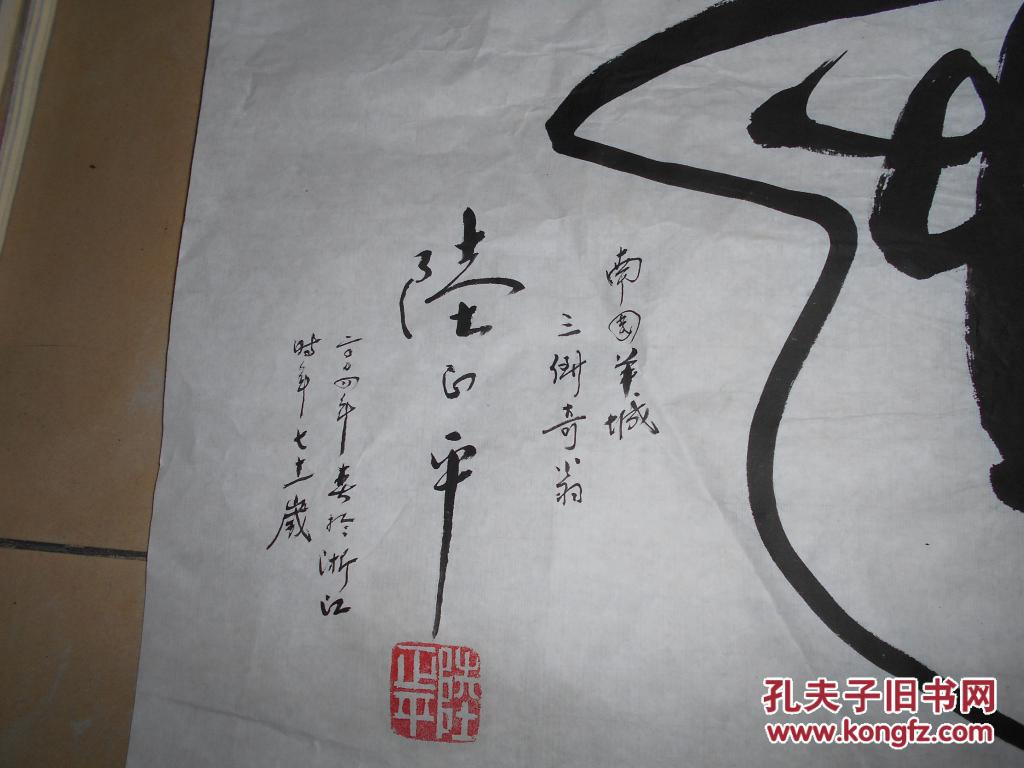 南国羊城
三 奇翁
陸正平
二〇〇四年春於浙江
時年七 歲
陸正平
孔夫子旧书网
www.kongfz.com